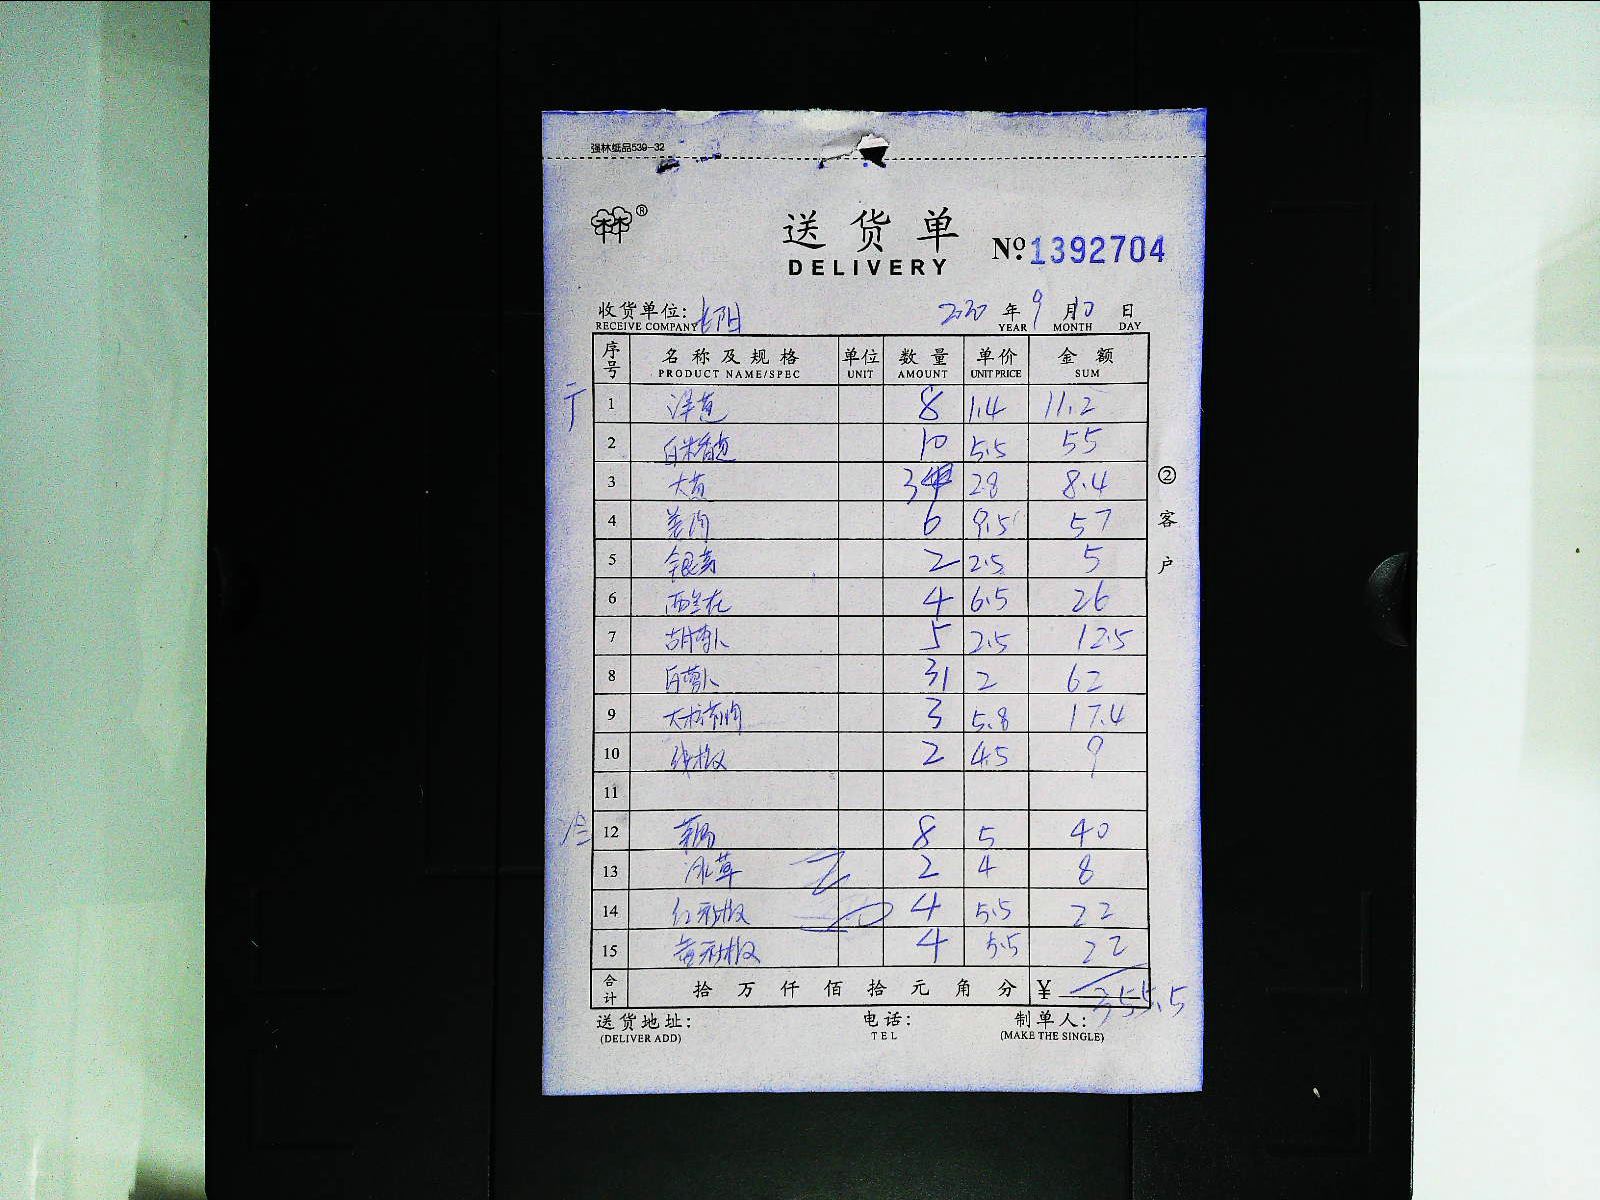 强林纸品539-32
®
送货单
DELIVERY
№:1392704
收货单位: 长阳 2020 年 9 月 10 日
RECEIVE COMPANY YEAR MONTH DAY
序号 名称及规格 单位 数量 单价 金额
PRODUCT NAME/SPEC UNIT AMOUNT UNIT PRICE SUM
1 洋芋 8 1.4 11.2
2 10 5.5 55
3 大葱 3 28 8.4
4 姜肉 6 9.5 57
5 银芽 2 2.5 5
6 西兰花 4 6.5 26
7 胡萝卜 5 2.5 12.5
8 白萝卜 31 2 62
9 3 5.8 17.4
10 线椒 2 4.5 9
11
12 8 5 40
13 冰草 2 4 8
14 红彩椒 4 5.5 22
15 黄彩椒 4 5.5 22
合计 拾 万 仟 佰 拾 元 角 分 ¥ 355.5
送货地址: 电话: 制单人:
(DELIVER ADD) TEL (MAKE THE SINGLE)
②客户